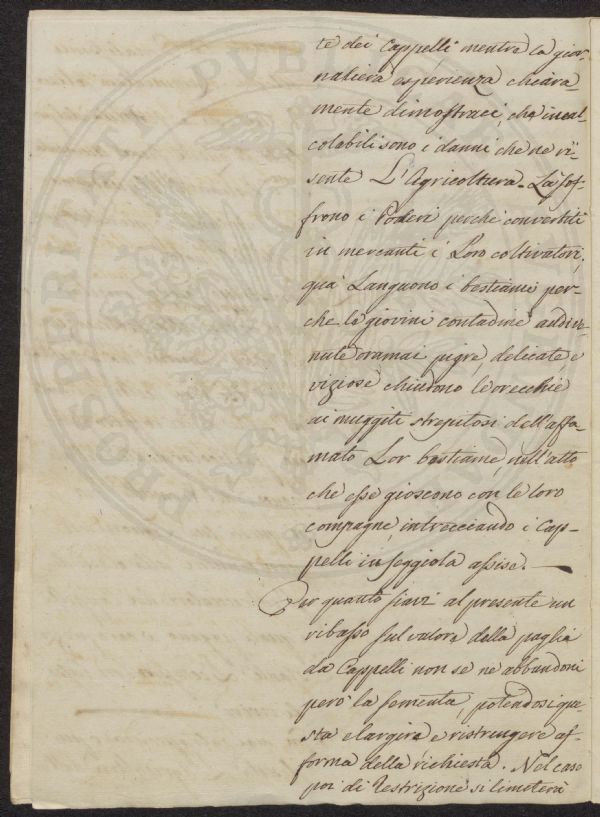 te dei Cappelli mentre la gior-
naliera esperienza chiara-
mente dimostraci, che incal-
colabili sono i danni che ne ri-
sente L'Agricoltura. La sof-
frono i Poderi perché convertiti
in mercanti i Loro coltivatori,
quà Languono i bestiami per-
che le giovini contadine addive-
nute oramai pigre, delicate, e
viziose chiudono le orecchie
ai muggiti strepitosi dell'affa-
mato Lor bestiame, nell'atto
che esse gioscono con le loro
compagne, intrecciando i Cap-
pelli in seggiola assise. —
Per quanto siavi al presente un
ribasso sul valore della paglia
da Cappelli non se ne abbandoni
però la sementa, potendosi que-
sta elargire e ristringere af-
forma della richiesta. Nel caso
poi di restrizione si limiterà
PROSPERITATI PUBL